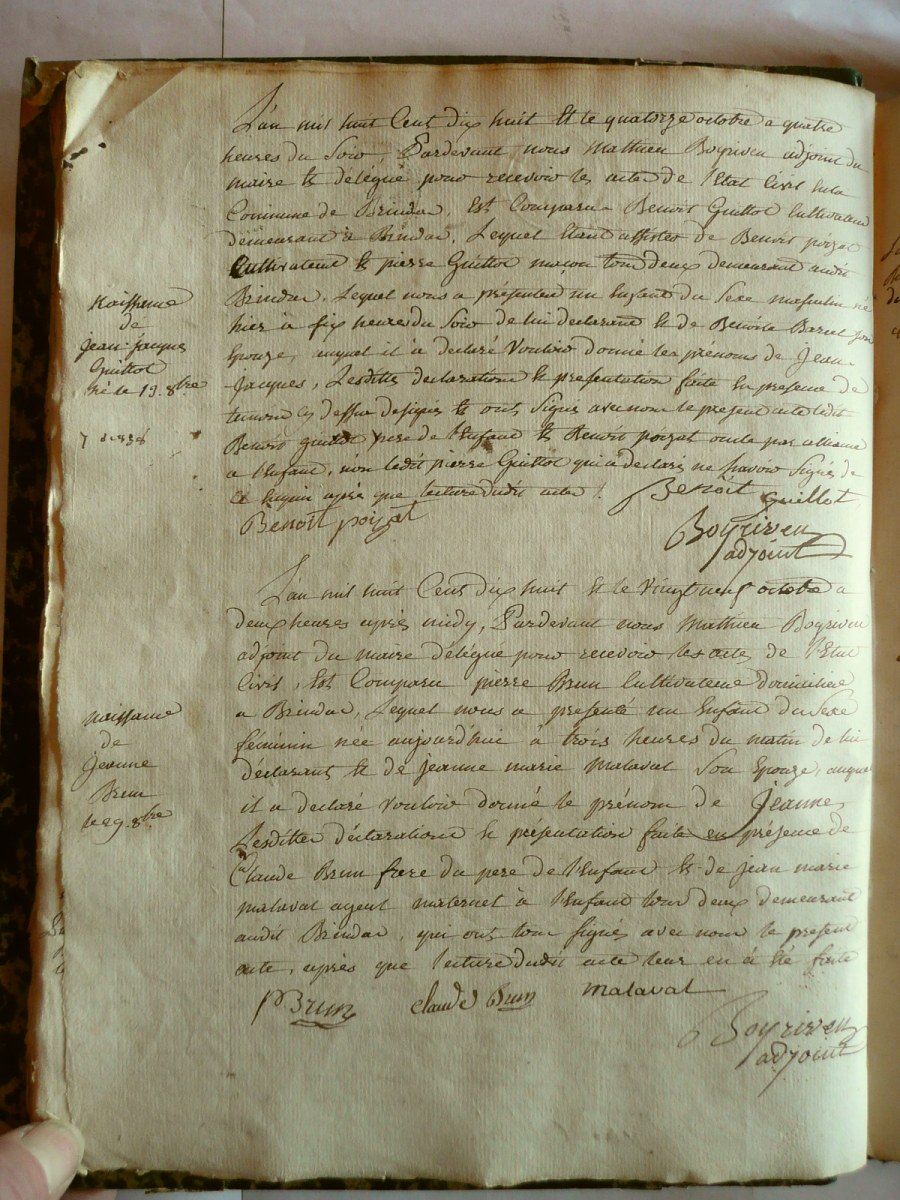 L'an mil huit Cent dix huit Et le quatorze octobre a quatre
heures du Soir, Pardevant nous Mathieu Boyriven adjoint du
maire & délégué pour recevoir les actes de l'Etat Civil en la
Commune de Brindas, Est Comparu Benoit Guillot Cultivateur
demeurant à Brindas, Lequel Etant assistés de Benoit poizat
Cultivateur & pierre Guillot maçon tous deux demeurant audit
Brindas. Lequel nous a présenté un Enfant du Sexe masculin né
hier à six heures du Soir de lui declarant & de Benoite Barcel son
Epouze, auquel il à declaré Vouloir donné les prénoms de Jean
jacques, Lesdittes declarations & presentation faite En presence de
temoins cy dessus designés & ont Signés avec nous le present acte ledit
Benoit guillot pere de l'Enfant & Benoit poizat oncle par alliance
a l'Enfant, non ledit pierre Guillot qui a declaré ne Savoir Signés de
Ce Enquis après que lecture dudit acte
Benoit guillot
Benoit poizat
Boyriven
adjoint
Naissance
de
jean-jacques
Guillot
né le 13. 8bre
L'an mil huit Cent dix huit Et le Vingt neuf octobre a
deux heures après midy, Pardevant nous Mathieu Boyriven
adjoint du maire délégué pour recevoir les actes de l'Etat
Civil, Est Comparu pierre Brun Cultivateur domicilié
a Brindas, Lequel nous a presenté un Enfant du Sexe
féminin née aujourd'hui à trois heures du matin de lui
déclarant & de jeanne marie Malaval Son Epouze, auquel
il a declaré vouloir donné le prénom de Jeanne,
Lesdittes déclarations & présentation faite en présence de
Claude Brun frere du pere de l'Enfant & de jean marie
malaval ayeul maternel à l'Enfant tous deux demeurant
audit Brindas, qui ont tous Signés avec nous le present
acte, après que lecture dudit acte leur en à été faite
PBrun claude Brun malaval
Boyriven
adjoint
naissance
de
jeanne
Brun
le 29. 8bre